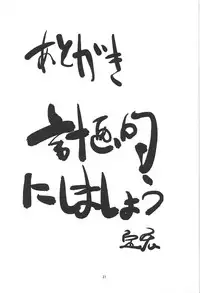 あとがき
計画的
にしましょう